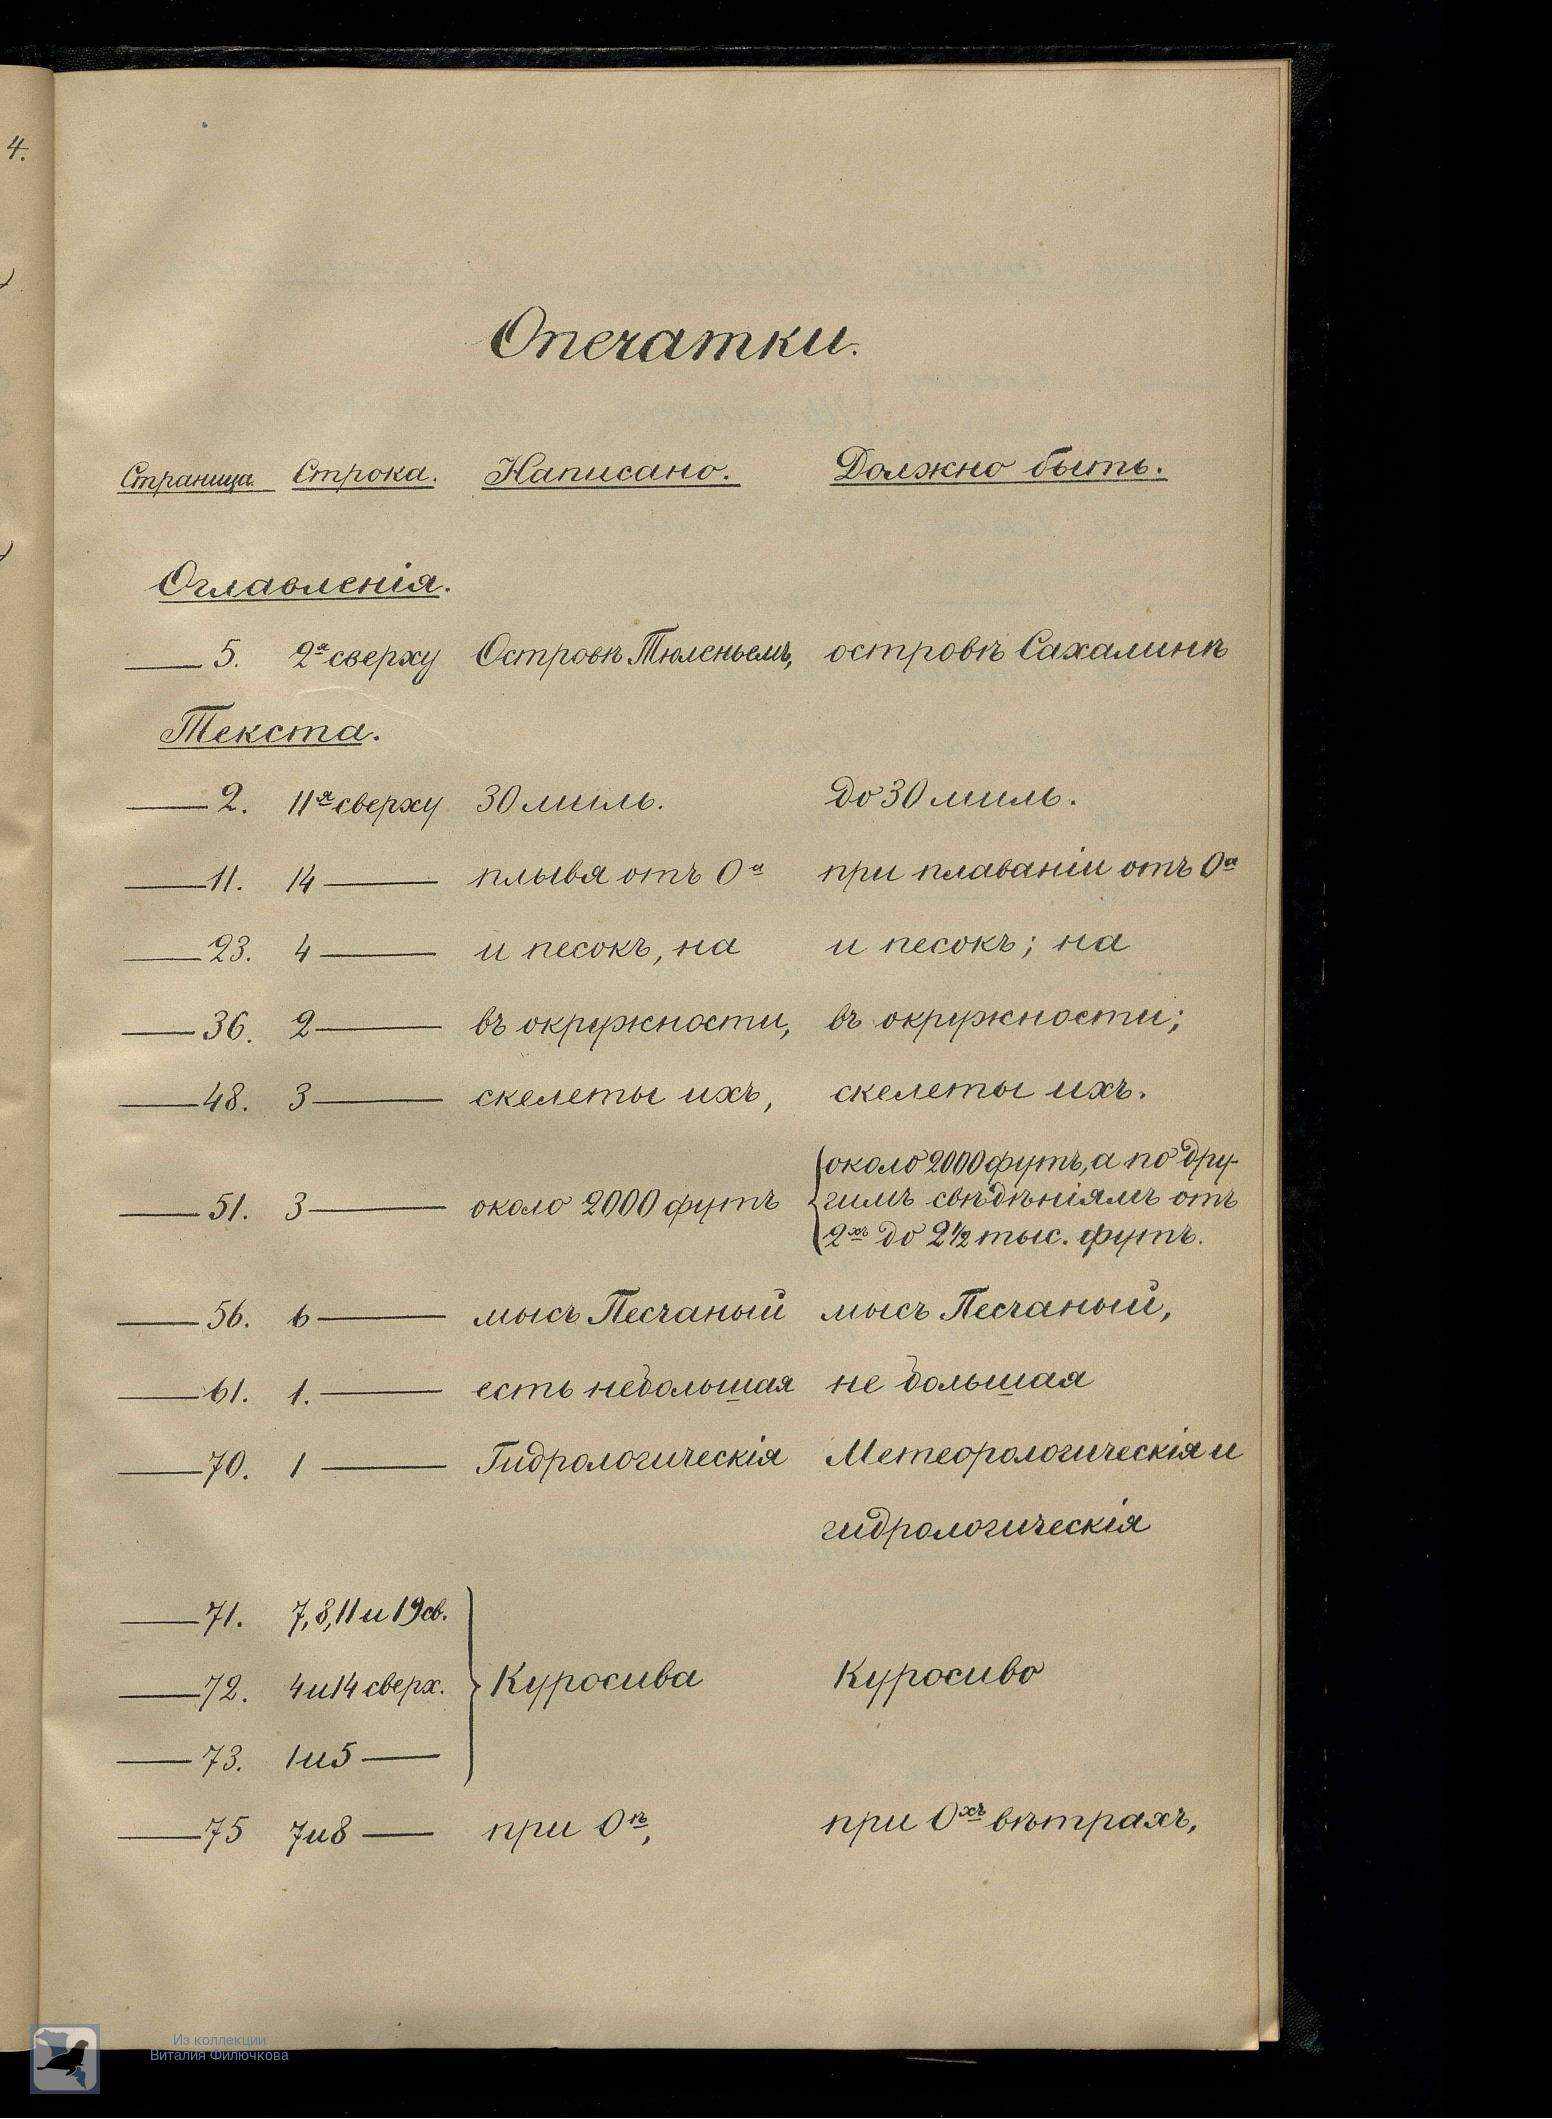 4.
Опечатки.
Страница. Строка. Написано. Должно быть.
Оглавленія.
—— 5. 2ª сверху Островѣ Тюленьемъ, островѣ Сахалинѣ
Текста.
—— 2. 11я сверху 30 миль. до 30 миль.
—— 11. 14 —— плывя отъ Оа при плаваніи отъ Оа
—— 23. 4 —— и песокъ, на и песокъ; на
—— 36. 2 —— въ окружности, въ окружности;
—— 48. 3 —— скелеты ихъ, скелеты ихъ.
—— 51. 3 —— около 2000 футъ { около 2000 футъ, а по дру-
гимъ свѣдѣніямъ отъ
2хъ до 2½ тыс. футъ.
—— 56. 6 —— мысъ Песчаный мысъ Песчаный,
—— 61. 1. —— есть небольшая не большая
—— 70. 1 —— Гидрологическія Метеорологическія и
гидрологическія
—— 71. 7, 8, 11 и 19 св.
—— 72. 4 и 14 сверх. } Куросива Куросиво
—— 73. 1 и 5 ——
—— 75 7 и 8 —— при Оѣ, при Охъ вѣтрахъ,
Из коллекции
Виталия Филючкова